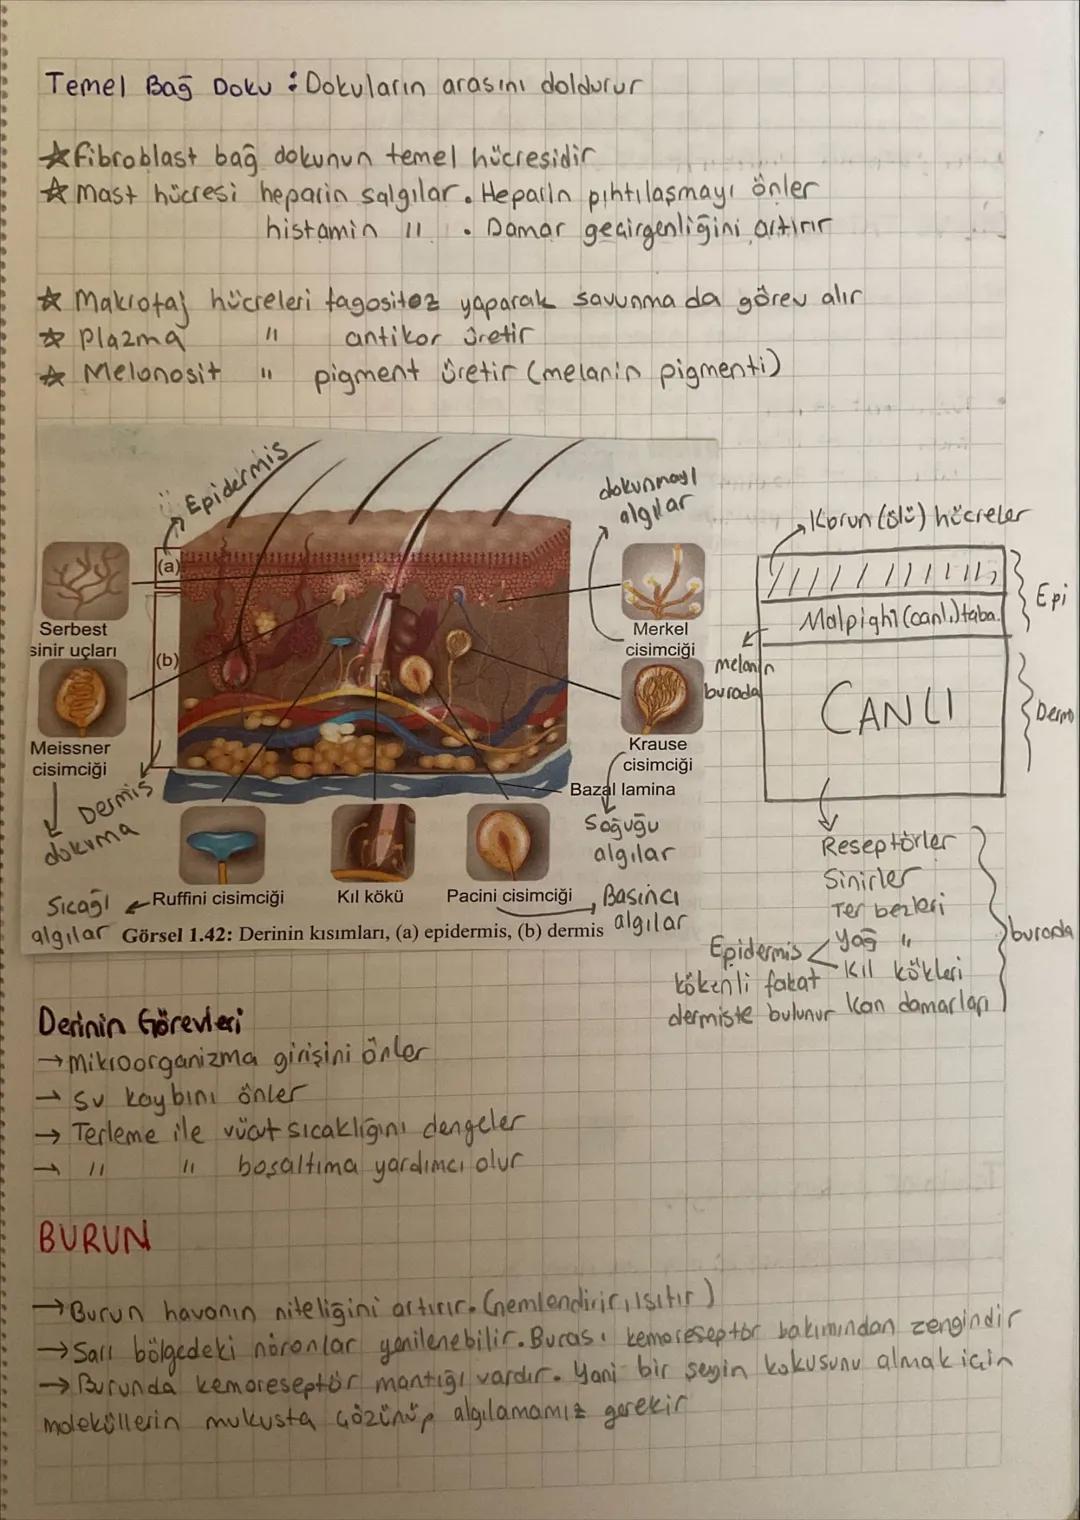 Temel Bağ Doku : Dokuların arasını doldurur
☆ fibroblast bağ dokunun temel hücresidir
☆ Mast hücresi heparin salgılar. Heparin pıhtılaşmayı önler
histamin " . Damar geçirgenliğini artırır
☆ Makrofaj hücreleri fagositoz yaparak savunma da görev alır
☆ Plazma " antikor üretir
☆ Melonosit " pigment üretir (melanin pigmenti)
Epidermis
dokunmayı
algılar
(a)
Serbest
sinir uçları
(b)
Meissner
cisimciği
Dermis
dokuma
Merkel
cisimciği
Krause
cisimciği
Bazal lamina
Soğuğu
algılar
Ruffini cisimciği
Kıl kökü
Pacini cisimciği
Sıcağı
algılar
Basıncı
algılar
Görsel 1.42: Derinin kısımları, (a) epidermis, (b) dermis
Korun (ölü) hücreler
Malpighi (canlı) taba.
Epi
melanin
burada
CANLI
Dermo
Reseptörler
Sinirler
Ter bezleri
Yağ "
Kıl kökleri
Kan damarları
burada
Epidermis
kökenli fakat
dermiste bulunur
Derinin Görevleri
→ Mikroorganizma girişini önler
→ Su kaybını önler
→ Terleme ile vücut sıcaklığını dengeler
→ " " boşaltıma yardımcı olur
BURUN
→ Burun havanın niteliğini artırır. (nemlendirir, ısıtır)
→ Sarı bölgedeki nöronlar yenilenebilir. Burası kemoreseptör bakımından zengindir
→ Burunda kemoreseptör mantığı vardır. Yani bir şeyin kokusunu almak için
moleküllerin mukusta çözünüp algılamamız gerekir